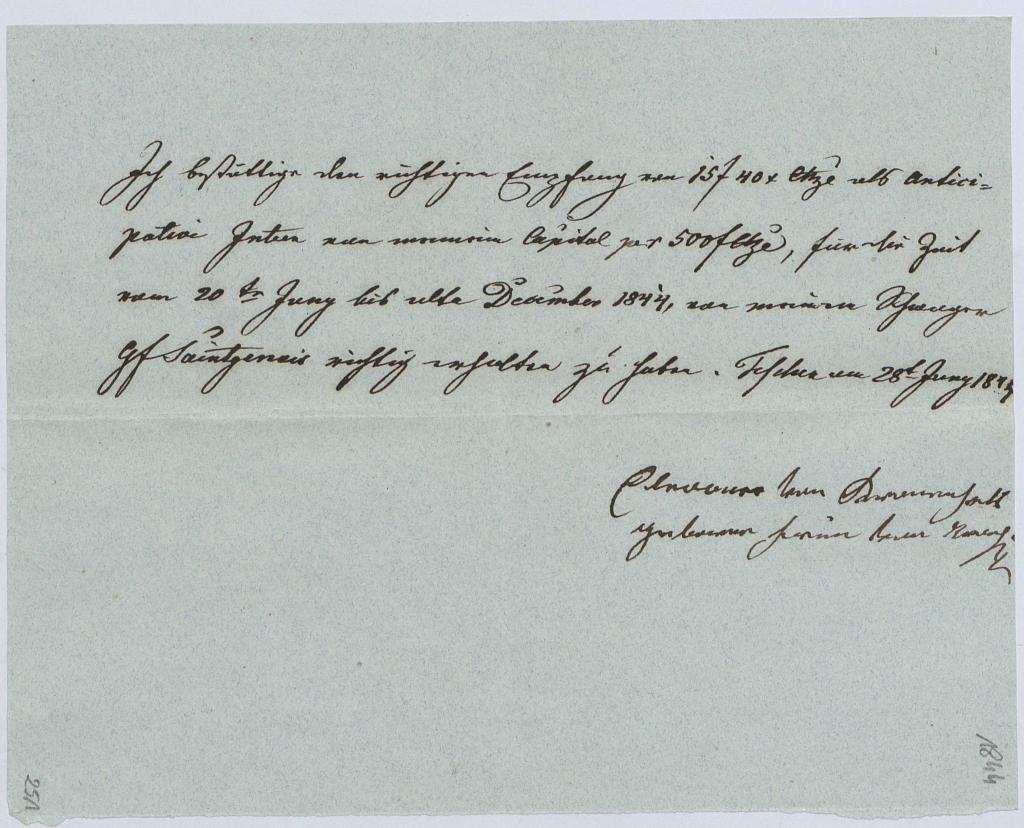 Ich bestättige den richtigen Empfang von 15 f 40 x CMze als Antici-
pativ Intere von meinem Capital per 500 f CMze, für die Zeit
vom 20 t Juny bis ulto December 1844, von meinem Schwager
Gf Saintgenois richtig erhalten zu haben. Teschen am 28t Juny 1844
Eleonore von
geborene von
1844
251